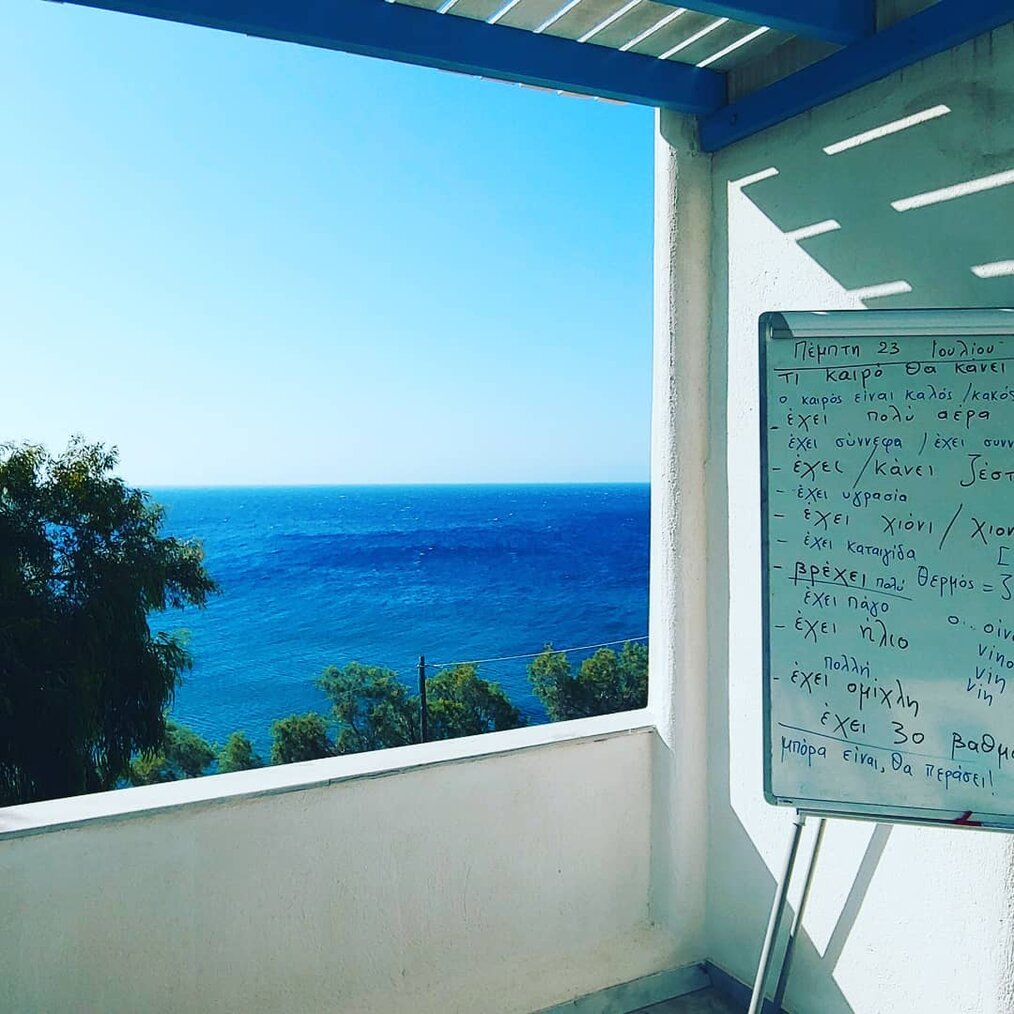 Πέμπτη 23 Ιουλίου
τι καιρό θα κάνει
ο καιρός είναι καλός /κακός
- έχει πολύ αέρα
έχει σύννεφα / έχει συνν
- έχει / κάνει ζέστ
- έχει υγρασία
- έχει χιόνι / χιον
- έχει καταιγίδα [
- βρέχει πολύ θερμός = ζ
έχει πάγο
- έχει ήλιο ο... οίν
vino
vin
vin
πολλή
- έχει ομίχλη
έχει 30 βαθμο
μπόρα είναι, θα περάσει!